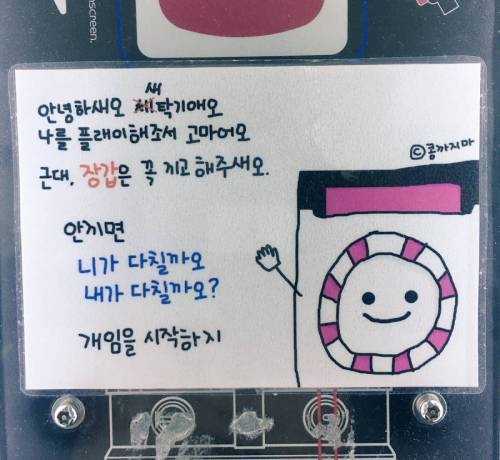 nscreen.
안녕하새오 새탁기애오
나를 플래이해조서 고마어오
ⓒ콩까지마
근대, 장갑은 꼭 끼고 해주새오.
안끼면
니가 다칠까오
내가 다칠까오?
개임을 시작하지